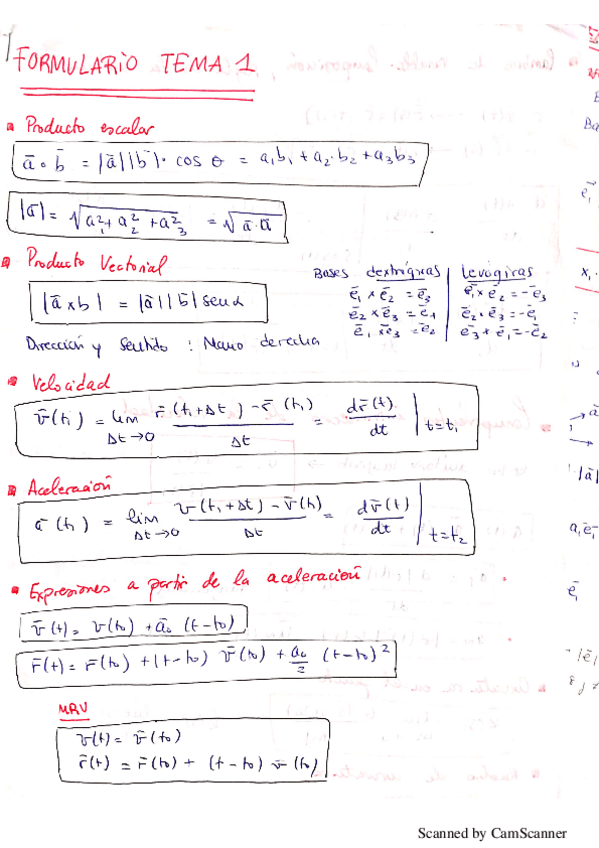 FORMULARIO TEMA 1
Producto escalar
ā∘b̄ = |ā||b̄|· cos θ = a₁b₁ + a₂·b₂ + a₃b₃
|ā| = √(a₁² + a₂² + a₃²) = √(ā·ā)
Producto Vectorial
|ā x b| = |ā||b̄| senα
Dirección y Sentido : Mano derecha
Bases dextrógiras | levógiras
ē₁ × ē₂ = ē₃ | ē₁ × ē₂ = -ē₃
ē₂ × ē₃ = ē₁ | ē₂ × ē₃ = -ē₁
ē₁ × ē₃ = ē₂ | ē₃ × ē₁ = -ē₂
Velocidad
v̄(t₁) = lim Δt→0 (r̄(t₁+Δt) - r̄(t₁))/Δt = dr̄(t)/dt | t=t₁
Aceleración
ā(t₁) = lim Δt→0 (v(t₁+Δt) - v̄(t₁))/Δt = dv̄(t)/dt | t=t₂
Expresiones a partir de la aceleración
v̄(t) = v(t₀) + ā₀ (t-t₀)
r̄(t) = r̄(t₀) + (t-t₀) v̄(t₀) + a₀/2 (t-t₀)²
MRU
v(t) = v̄(t₀)
r̄(t) = r̄(t₀) + (t-t₀) v̄(t₀)
Scanned by CamScanner